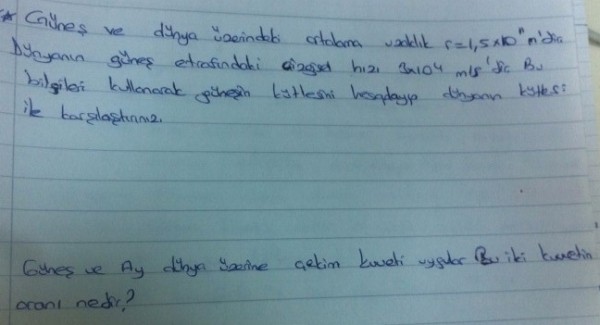 * Güneş ve dünya üzerindeki ortalama uzaklık r=1,5x10¹¹ m'dir
Dünyanın güneş etrafındaki çizgisel hızı 3x10⁴ m/s'dir Bu
bilgileri kullanarak güneşin kütlesini hesaplayıp dünyanın kütlesi
ile karşılaştırınız.
Güneş ve Ay dünya üzerine çekim kuvveti uygular Bu iki kuvvetin
oranı nedir?